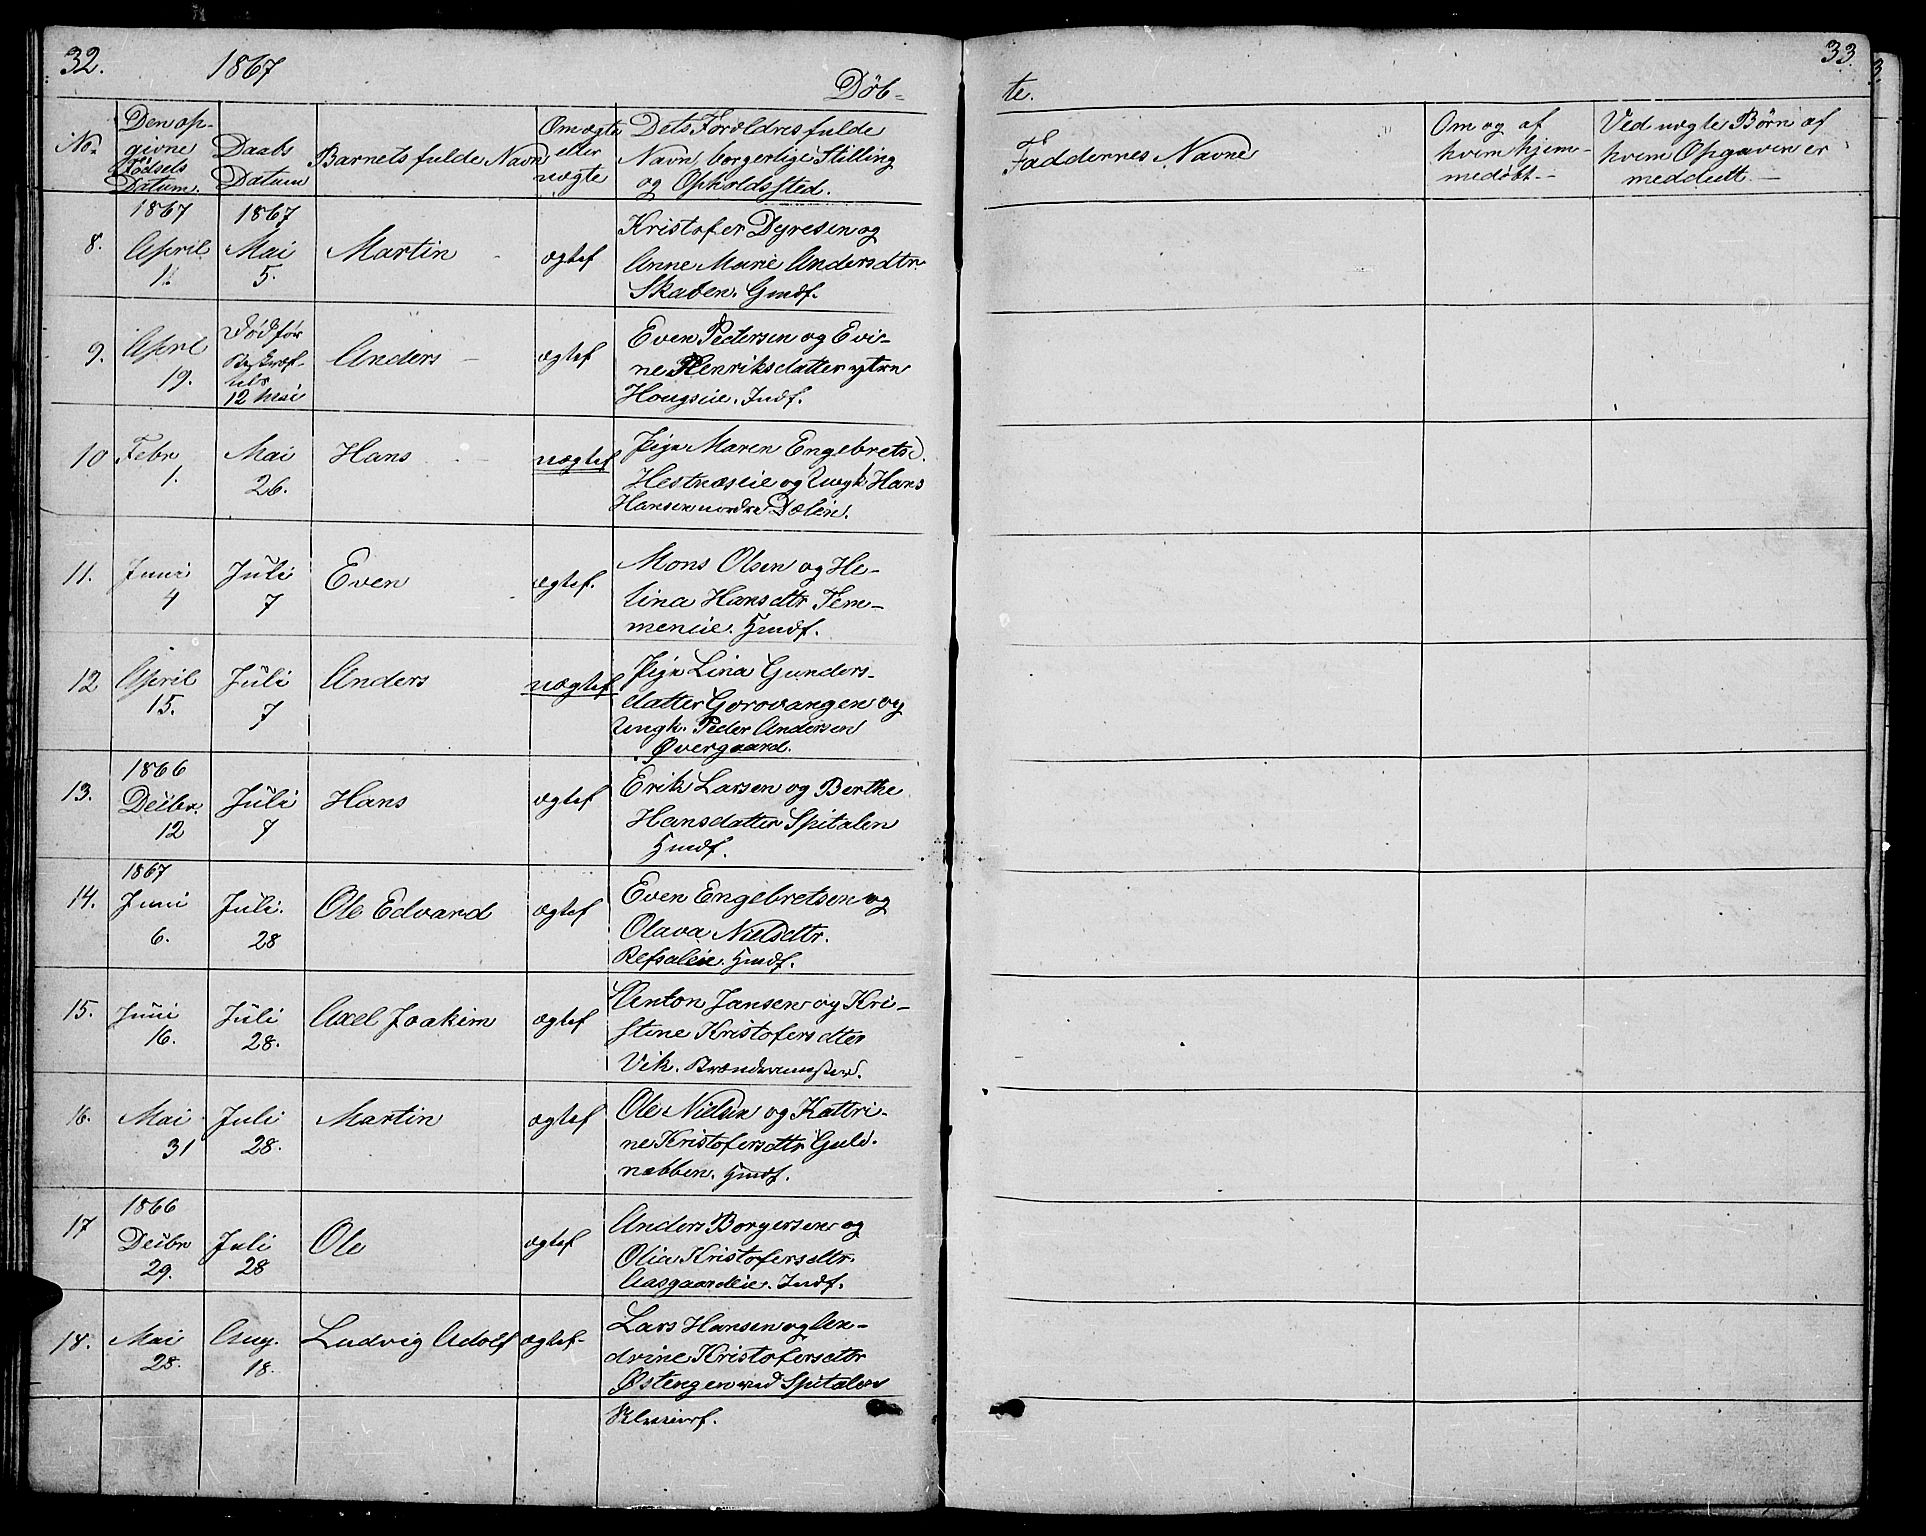 32. 1867 Døb-
te. 33
No. Den op- givne Fødsels Datum. Daabs Datum Barnets fulde Navn Om ægte eller uægte Dets Forældres fulde Navn borgerlige Stilling og Opholdssted. Faddernes Navne Om og af hvem hjem- medøbt.- Ved uægte Børn af hvem Opgaven er meddeelt.-
1867 1867 Kristofer Dyresen og
8. April Mai Martin ægtef Anne Marie Andersdtr.
11. 5. Skaben. Gmdf.
9. April Død før Anders ægtef Even Pedersen og Evi-
19. ne Henriksdatter ytre
12 Mai Hougseie. Indf.
10 Febr Mai Hans uægtef Pige Maren Engebretsd.
1. 26. Hestnæseie og Ungk Hans
Hansen nordre Dælin.
11. Juni Juli Even ægtef. Mons Olsen og He-
4 7 lina Hansdtr Tem-
meneie. Hmdf.
12 April Juli Anders uægtef Pige Lina Gunders-
15. 7 datter Gorovangen og
Ungk. Peder Andersen
Øvergaard.
1866
13. Decbr. Juli Hans ægtef Erik Larsen og Berthe
12 7 Hansdatter Spitalen
Hmdf.
1867
14. Juni Juli. Ole Edvard ægtef Even Engebretsen og
6. 28 Olava Nielsdtr.
Refsaleie. Hmdf.
15. Juni Juli Axel Joakim ægtef Anton Jansen og Kri-
16. 28. stine Kristofersdtr
Vik.
16. Mai Juli Martin ægtef Ole Nielsen og Kattri-
31 28. ne Kristofersdtr Guld-
næbben. Hmdf.
1866
17 Decbr Juli Ole ægtef Anders Borgersen og
29. 28 Olia Kristofersdtr.
Aasgaardeie. Indf.
18. Mai Aug. Ludvig Adolf ægtef- Lars Hansen og An-
28. 18. drine Kristofersdtr
Østengen ved Spitalen